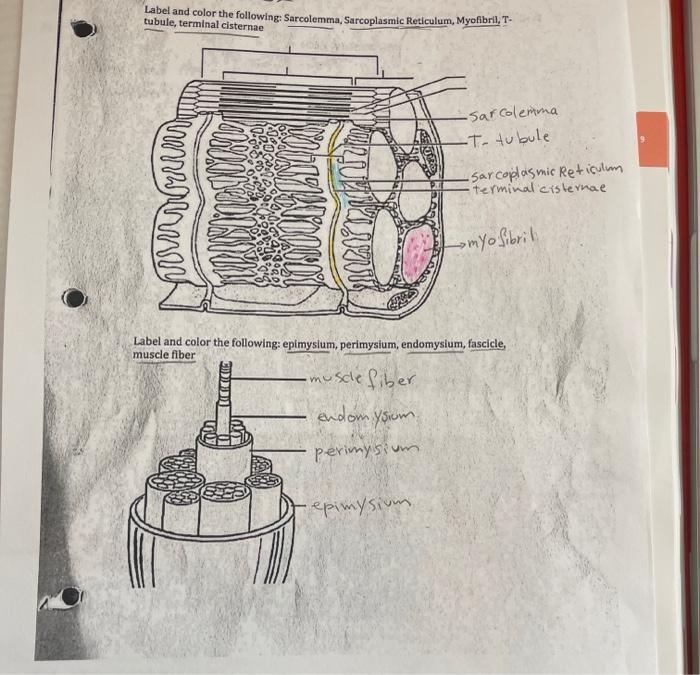 Label and color the following: Sarcolemma, Sarcoplasmic Reticulum, Myofibril, T-
tubule, terminal cisternae
Sarcolemma
T- tubule
Sarcoplasmic Reticulum
terminal cisternae
myofibril
Label and color the following: epimysium, perimysium, endomysium, fascicle,
muscle fiber
muscle fiber
endomysium
perimysium
epimysium
9